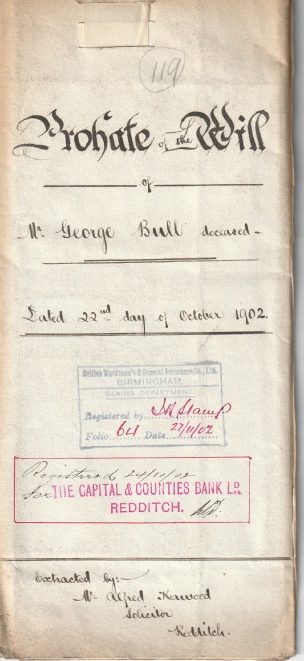 119
Probate of the Will
of
Mr. George Bull deceased
Dated 22nd day of October 1902.
British Workman's & General Assurance Co., Ltd.
BIRMINGHAM
CLAIMS DEPARTMENT
Registered by
Folio 64 Date 27/11/02
Registered 24/10/02
for THE CAPITAL & COUNTIES BANK LD.
REDDITCH.
Extracted by:-
Mr. Alfred Kerwood
Solicitor
Redditch.